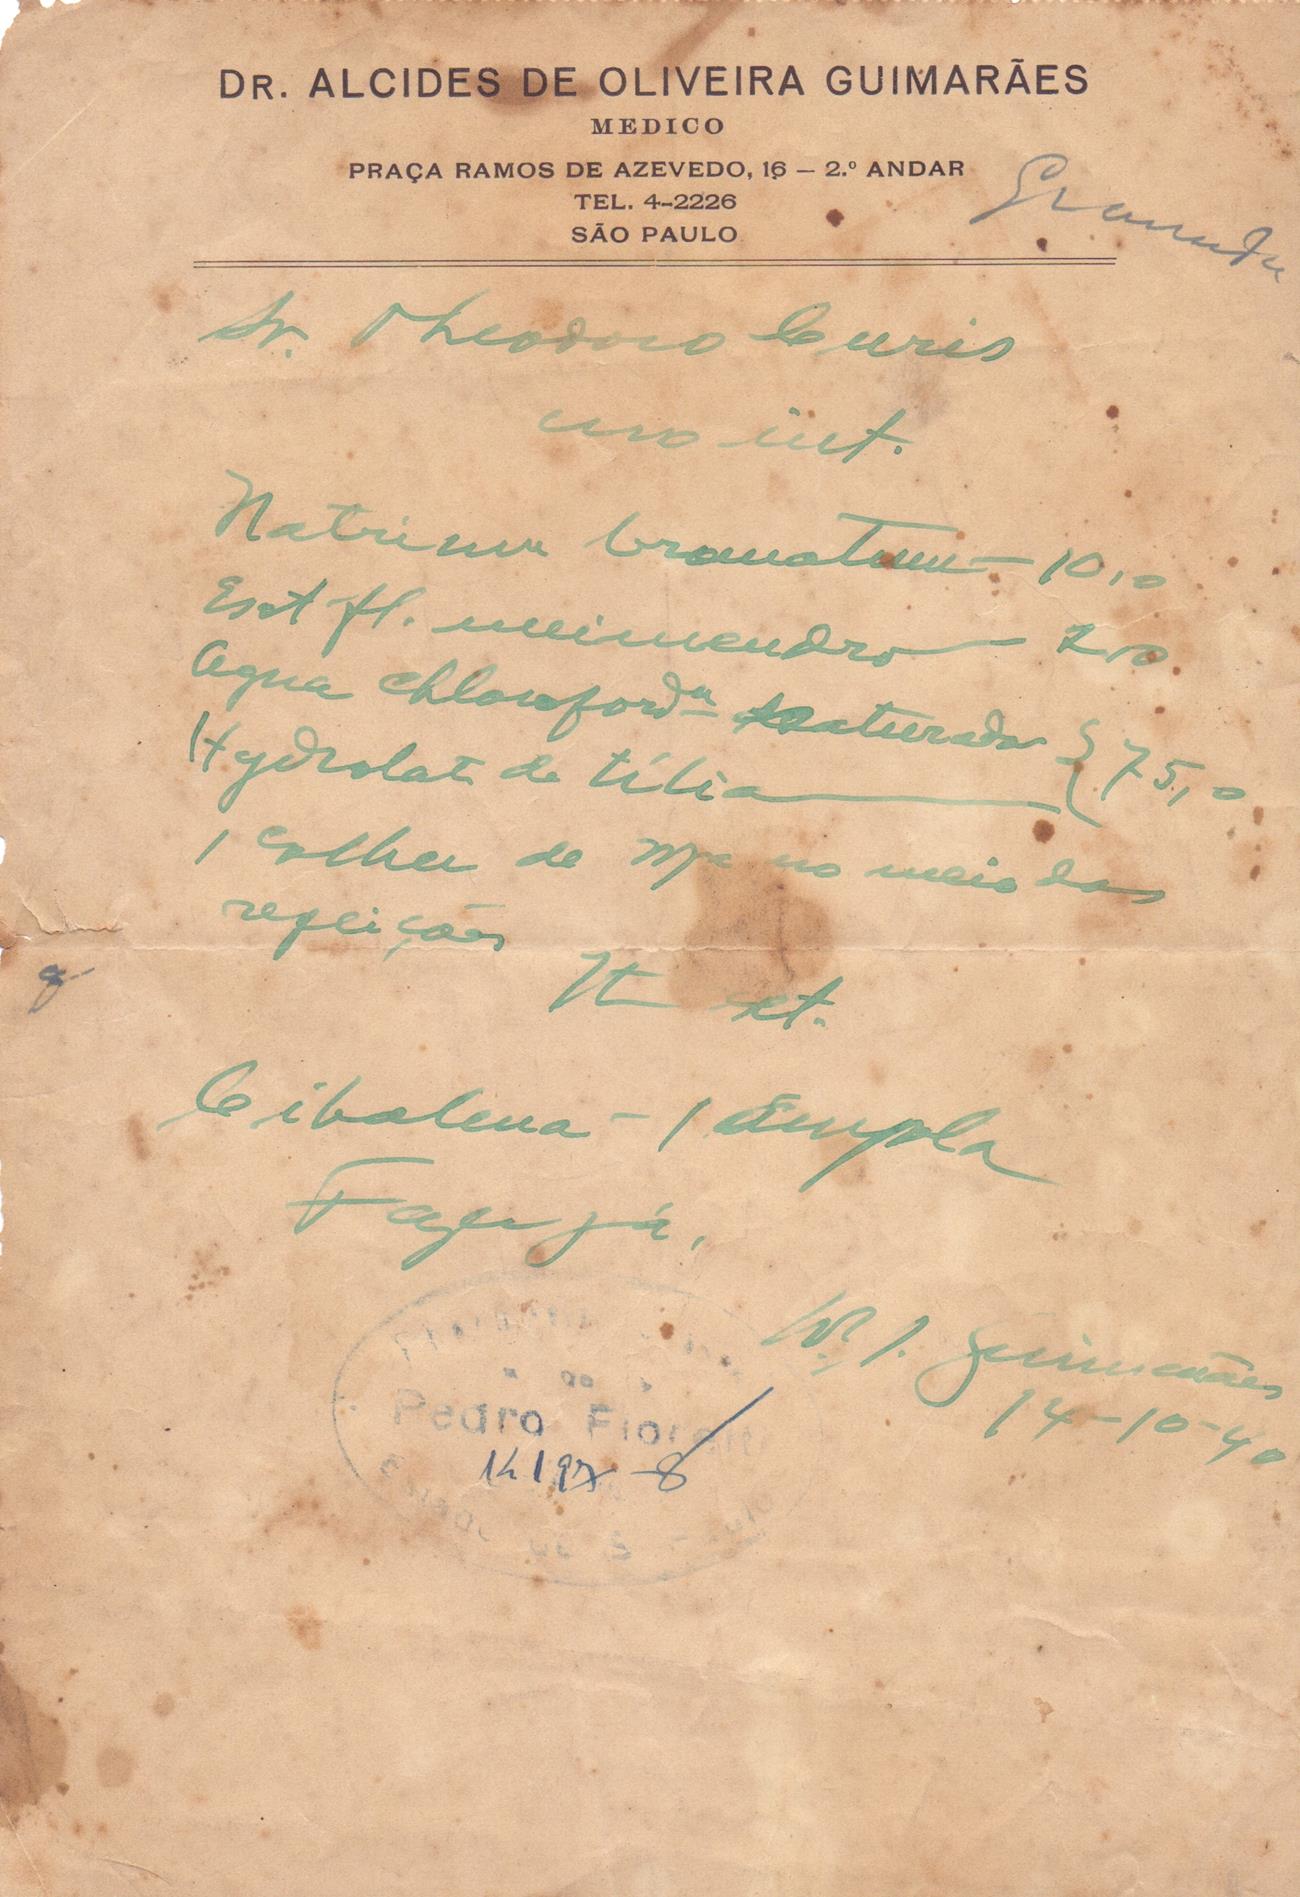 DR. ALCIDES DE OLIVEIRA GUIMARÃES
MEDICO
PRAÇA RAMOS DE AZEVEDO, 16 – 2.º ANDAR
TEL. 4-2226
SÃO PAULO
Sr. Theodoro Curis
uso int.
Natrium bromatum – 10,0
Ext fl. meimendro – 2,0
Agua chloroford.a saturada } 75,0
Hydrolat de tilia
1 colher de no meio das
refeições
It
Cibalena – 1 Empola
Faça já.
Guimarães
14-10-40
Pedro